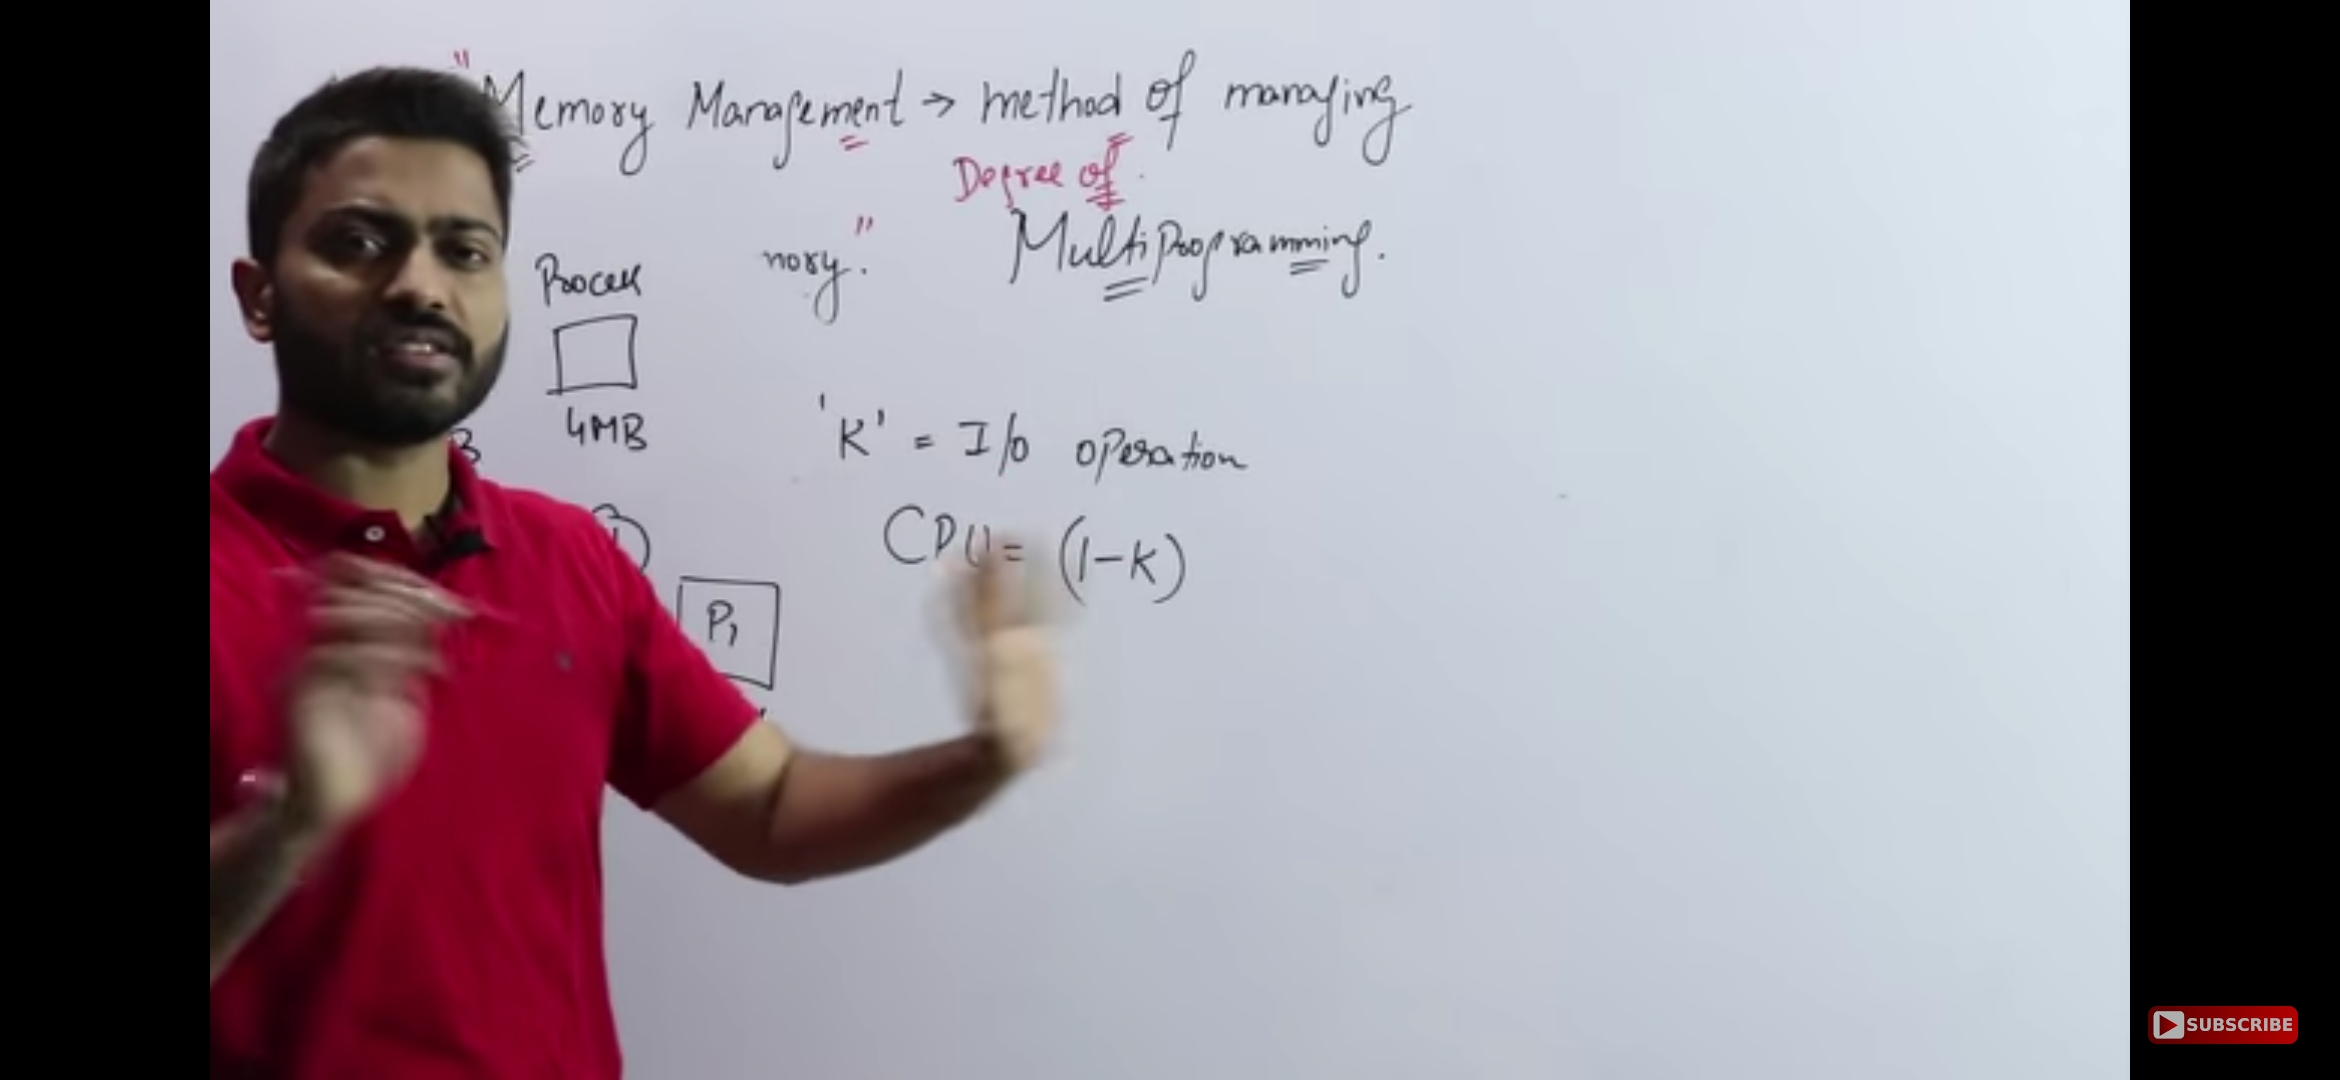 "Memory Management → method of managing
Degree of
nory." MultiProgramming.
Process
4MB
'K' = I/o operation
B
CPU = (1-K)
P1
SUBSCRIBE